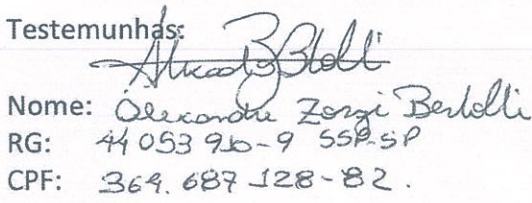 Testemunhas:
Nome: Alexandre Zorzi Bertolli
RG: 44 053 910-9 SSP-SP
CPF: 369.687 128-82.